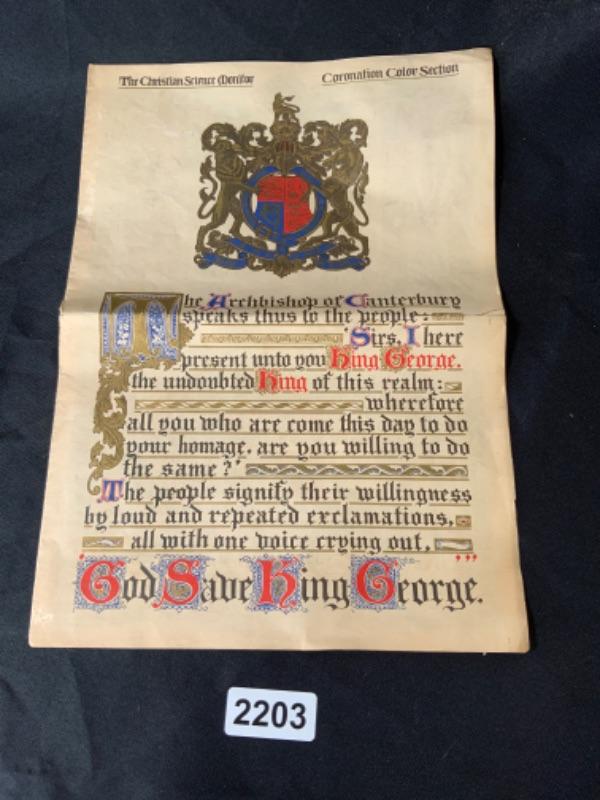 The Christian Science Monitor
Coronation Color Section
The Archbishop of Canterbury
speaks thus to the people:
'Sirs, I here
present unto you King George,
the undoubted King of this realm:
wherefore
all you who are come this day to do
your homage, are you willing to do
the same?'
The people signify their willingness
by loud and repeated exclamations,
all with one voice crying out,
'God Save King George.'''
2203